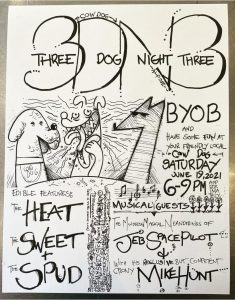 COW DOG
3DN3
THREE DOG NIGHT THREE
BYOB
AND
HAVE SOME FUN AT
YOUR FRIENDLY LOCAL
COW DOG
SATURDAY
JUNE 5, 2021
6-9 PM
EDIBLE FEATURES:
THE HEAT
THE SWEET
+
THE SPUD
MUSICAL GUESTS
THE MUSICAL MEANDERINGS OF
JEB SPACE PILOT
WITH HIS BUT COMPETENT
CRONY MIKE HUNT